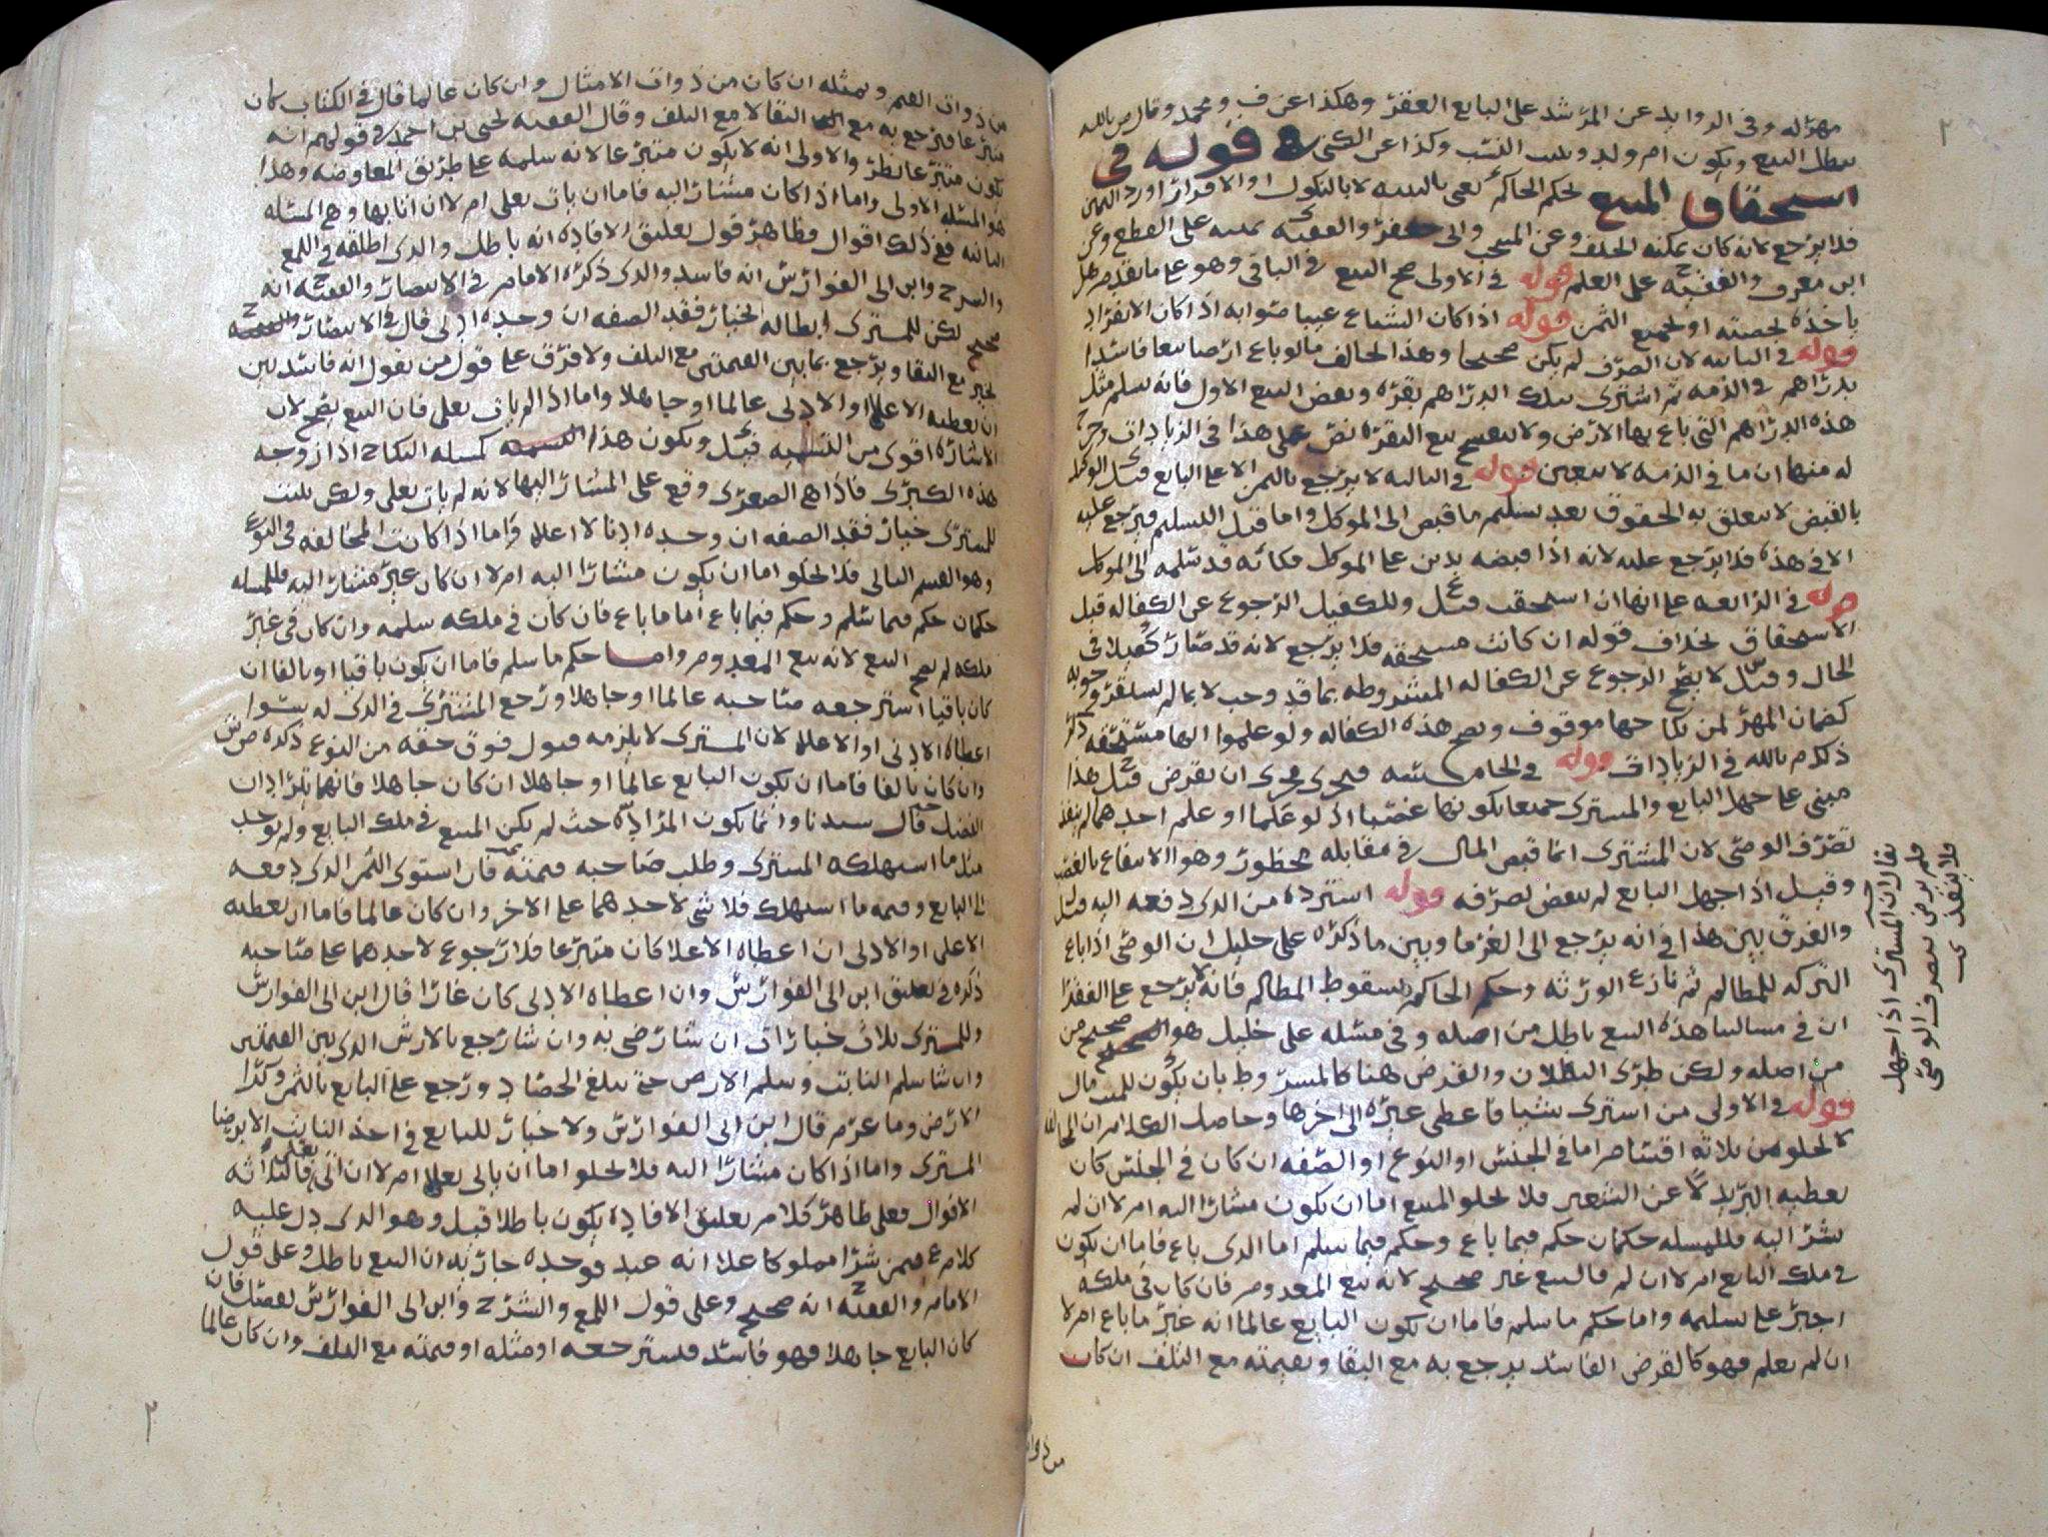 مهزله وفي الزوايد عن المرشد على البايع العقر وهكذا عن ف ومحمد وقال ص بالله
يبطل البيع ويكون ام ولد ويثبت النسب وكذا عن الكني قوله في
استحقاق المبيع لحكم الحاكم يعني بالبينه لا بالنكول او الاقرار او رد اليمين
فلا يرجع لانه كان يمكنه الحلف وعن المنتخب والى جعفر والفقيه ى يمينه على القطع وعن
ابن معرف والفقيه ح على العلم قوله في الاولى صح البيع في الباقي وهو على ما تقدم هل
ياخذه لحصته او لجميع الثمن قوله اذا كان الشياع عيبا صوابه اذا كان الانفراد
قوله في الثانيه لان الصرف لم يكن صحيحا وهذا يخالف ما لو باع ارضا بيعا فاسدا
بدراهم في الذمه ثم اشترى بتلك الدراهم بقره ونقض البيع الاول فانه يسلم مثل
هذه الدراهم التي باع بها الارض ولا ينفسخ بيع البقره نص على هذا في الزيادات وخرج
له منها ان ما في الذمه لا يتعين قوله في الثالثه لا يرجع بالثمن الا على البايع قيل ى الوكيل
بالقبض لا تتعلق به الحقوق بعد تسليم ما قبض الى الموكل واما قبل التسليم فيرجع عليه
الا في هذه فلا يرجع عليه لانه اذا قبضه بدين على الموكل فكانه قد سلمه الى الموكل
قوله في الرابعه على انها ان استحقت قيل ع وللكفيل الرجوع عن الكفاله قبل
الاستحقاق بخلاف قوله ان كانت مستحقه فلا يرجع لانه قد صار كفيلا في
الحال وقيل س لا يصح الرجوع عن الكفاله المشروطه بما قد وجب لا بما لم يستقر وجوبه
كضمان المهر لمن نكاحها موقوف وتصح هذه الكفاله ولو علموا انها مستحقه ذكر
ذكره م بالله في الزيادات قوله في الخامسه فيجري مجرى ان يقرض قيل ح هذا
مبني على جهل البايع والمشتري جميعا بكونها غصبا اذ لو علما او علم احدهما لم ينفذ
تصرف الوصي لان المشتري انما قبض المال في مقابله محظور وهو الانتفاع بالغصب
وقيل اذا جهل البايع لم ينقض تصرفه قوله استرده من الذي دفعه اليه قيل
والفرق بين هذا في انه يرجع الى الغرما وبين ما ذكره على خليل ان الوصي اذا باع
التركه للمظالم ثم نازع الورثه وحكم الحاكم بسقوط المظالم فانه لا يرجع على الفقرا
ان في مسالتنا هذه البيع باطل من اصله وفي مسئله على خليل هو صحيح من
من اصله ولكن طرى البطلان والقرض هنا كالمشروط بان يكون للميت مال
قوله في الاولى من اشترى شيا فاعطى غيره الى اخرها وحاصل الكلام ان المخالفه
لا تخلو من ثلاثه اقسام اما في الجنس او النوع او الصفه ان كان في الجنس كان
يعطيه البر بدلا عن الشعير فلا يخلو المبيع اما ان يكون مشارا اليه ام لا ان لم
يشر اليه فللمسله حكمان حكم فيما باع وحكم فيما سلم اما الذي باع فاما ان يكون
في ملك البايع ام لا ان لم فالبيع غير صحيح لانه بيع المعدوم فان كان في ملكه
اجبر على تسليمه واما حكم ما سلم فاما ان يكون البايع عالما انه غير ما باع ام لا
ان لم يعلم فهو كالقرض الفاسد يرجع به مع البقا وبقيمته مع التلف ان كان
من ذوات
يقال ان المشتري اذا جهل
فلم يرض بتصرف الوصي
فلا ينفذ ى
من ذوات القيم وبمثله ان كان من ذوات الامثال وان كان عالما قال في الكتاب كان
متبرعا فيرجع به مع البقا لا مع التلف وقال الفقيه يحيى بن احمد في قولهم انه
يكون متبرعا نظر والاولى انه لا يكون متبرعا لانه سلمه على طريق المعاوضه وهذا
هو المسئله الاولى واما اذا كان مشارا اليه فاما ان يات بعلى ام لا ان اتا بها وهي المسئله
الثانيه ففي ذلك اقوال فظاهر قول تعليق الافاده انه باطل والذي اطلقه في اللمع
والشرح وابن ابي الفوارس انه فاسد والذي ذكره الامام في الانتصار والفقيه ح انه
صحيح لكن للمشتري ابطاله لخيار فقد الصفه ان وجده ادنى قال في الانتصار
لخير مع البقا ويرجع بما بين القيمتين مع التلف ولا فرق على قول من يقول انه فاسد بين
ان يعطيه الاعلا او الادنى عالما او جاهلا واما اذا لم يات بعلى فان البيع يصح لان
الاشاره اقوى من التسميه قيل ى ويكون هذا كمسله النكاح اذا زوجه
هذه الكبرى فاذا هي الصغرى وقع على المشار اليها لانه لم يات بعلى ولكن يثبت
للمشتري خيار فقد الصفه ان وجده ادنا لا اعلا واما اذا كانت المخالفه في النوع
وهو القسم الثاني فلا يخلو اما ان يكون مشارا اليه ام لا ان كان غير مشار اليه فللمسله
حكمان حكم فيما سلم وحكم فيما باع اما ما باع فان كان في ملكه سلمه وان كان في غير
ملكه لم يصح البيع لانه بيع المعدوم واما حكم ما سلم فاما ان يكون باقيا او تالفا ان
كان باقيا استرجعه صاحبه عالما او جاهلا ورجع المشتري في الذي له سوا
اعطاه الادنى او الاعلا لان المشتري لا يلزمه قبول فوق حقه من النوع ذكره ص ش
وان كان تالفا فاما ان يكون البايع عالما او جاهلا ان كان جاهلا فانهما يترادان
الفضل قال سيدنا وانما يكون المراد حيث لم يكن المبيع في ملك البايع ولم يوجد
مثل ما استهلكه المشتري وطلب صاحبه قيمته فان استوى الثمن الذي دفعه
الى البايع وقيمه ما استهلك فلا شي لاحدهما على الاخر وان كان عالما فاما ان يعطيه
الاعلى او الادنى ان اعطاه الاعلا كان متبرعا فلا رجوع لاحدهما على صاحبه
ذكره في تعليق ابن ابي الفوارس وان اعطاه الادنى كان غارا قال ابن ابي الفوارس
وللمشتري ثلاث خيارات ان شا رضي به وان شا رجع بالارش الذي بين القيمتين
وان شا سلم النابت وسلم الارض حتى يبلغ الحصاد ورجع على البايع بالثمن وكرا
الارض وما غرم قال ابن ابي الفوارس ولا خيار للبايع في اخذ النابت الا برضا
المشتري واما اذا كان مشارا اليه فلا يخلو اما ان ياتي بعلى ام لا ان اتى بعلى فالثلاثه
الاقوال فعلى ظاهر كلام تعليق الافاده يكون باطلا قيل وهو الذي دل عليه
كلام ع فيمن شرا مملوكا على انه عبد فوجده جاريه ان البيع باطل وعلى قول
الامام والفقيه ح انه صحيح وعلى قول اللمع والشرح وابن ابي الفوارس يفصل فان
كان البايع جاهلا فهو فاسد فيسترجعه او مثله او قيمته مع التلف وان كان عالما
٢